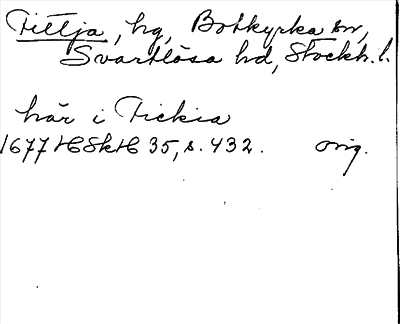 Tittja, hg, Botkyrka sn,
Svartlösa hd, Stockh. l.
här i Tickia
1677 HSkH 35, s. 432. orig.